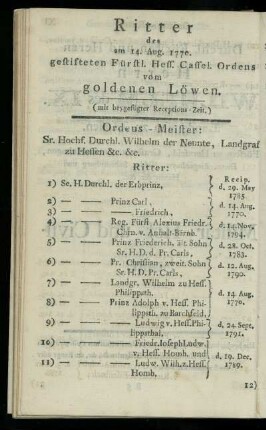 Ritter
des
am 14. Aug. 1770.
gestifteten Fürstl. Hess. Cassel. Ordens
vom
goldenen Löwen.
(mit beygefügter Receptions-Zeit.)
Ordens-Meister:
Sr. Hochf. Durchl. Wilhelm der Neunte, Landgraf
zu Hessen &c. &c.
Ritter:
Recip.
1) Se. H. Durchl. der Erbprinz, d. 29. May
1785.
2) — — Prinz Carl, d. 14. Aug.
3) — — — Friedrich, 1770.
4) — — Reg. Fürst Alexius Friedr. d. 14. Nov.
Chrn. v. Anhalt-Bernb. 1794.
5) — — Prinz Friederich, ält. Sohn d. 28. Oct.
Sr. H. D. d. Pr. Carls, 1783.
6) — — Pr. Christian, zweit. Sohn d. 12. Aug.
Sr. H. D. Pr. Carls, 1790.
7) — — Landgr. Wilhelm zu Hess.
Philippsth. d. 14. Aug.
8) — — Prinz Adolph v. Hess. Phi- 1770.
lippsth. zu Barchfeld,
9) — — — Ludwig v. Hess. Phi- d. 24. Sept.
lippsthal, 1791.
10) — — — Friedr. Joseph Ludw.
v. Hess. Homb. und d. 19. Dec.
11) — — — Ludw. Wilh. z. Hess. 1789.
Homb.
12)